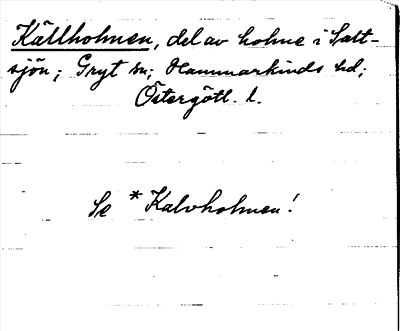 Källholmen, del av holme i Salt-
sjön; Gryt sn; Hammarkinds hd;
Östergötl. l.
Se *Kalvholmen!